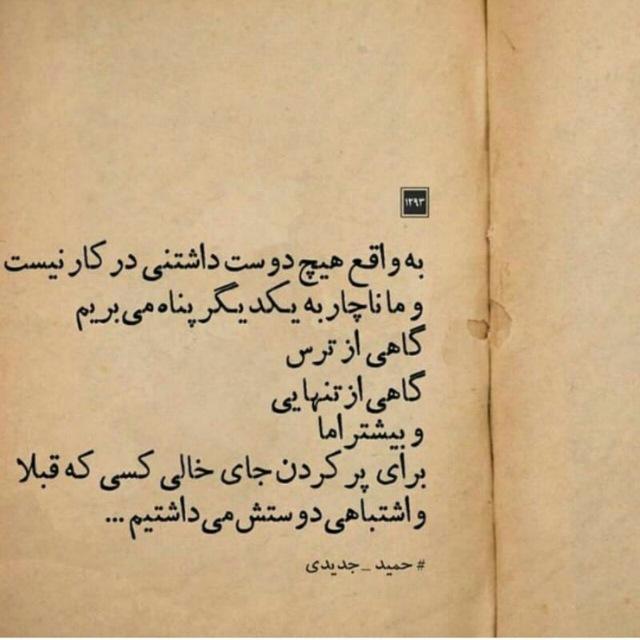 ۱۲۹۳
به واقع هیچ دوست داشتنی در کار نیست
و ما ناچار به یکدیگر پناه می‌بریم
گاهی از ترس
گاهی از تنهایی
و بیشتر اما
برای پر کردن جای خالی کسی که قبلا
و اشتباهی دوستش می‌داشتیم ...
# حمید _جدیدی